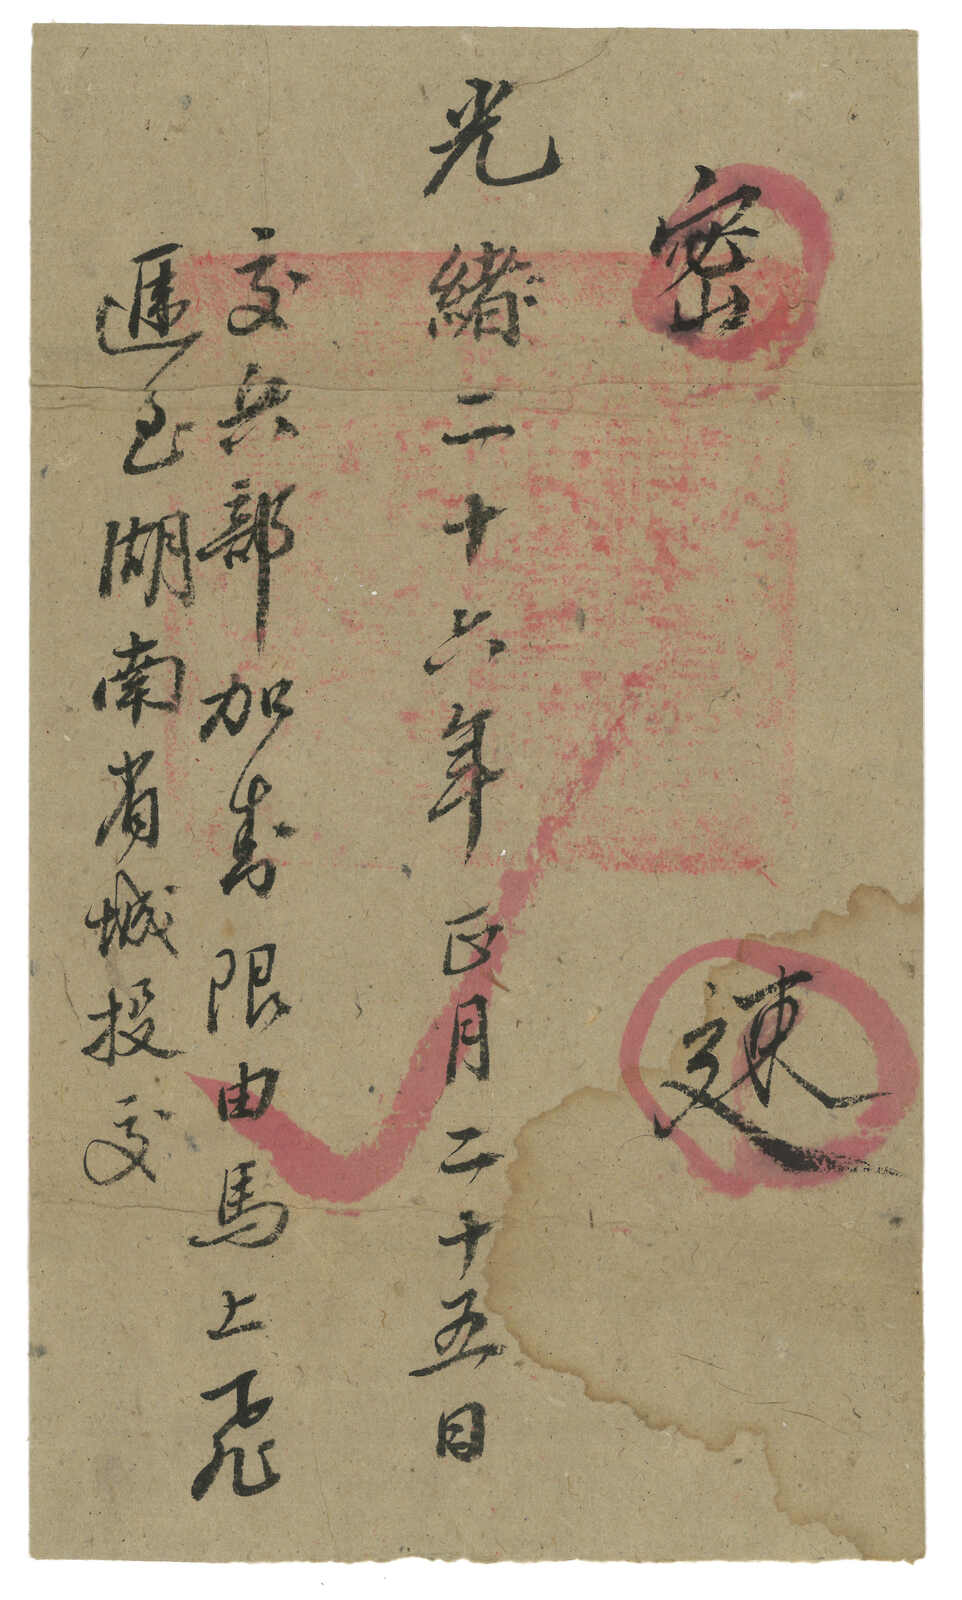 密 速
光緒二十六年正月二十五日
交兵部加封限由馬上飛
遞至湖南省城投交